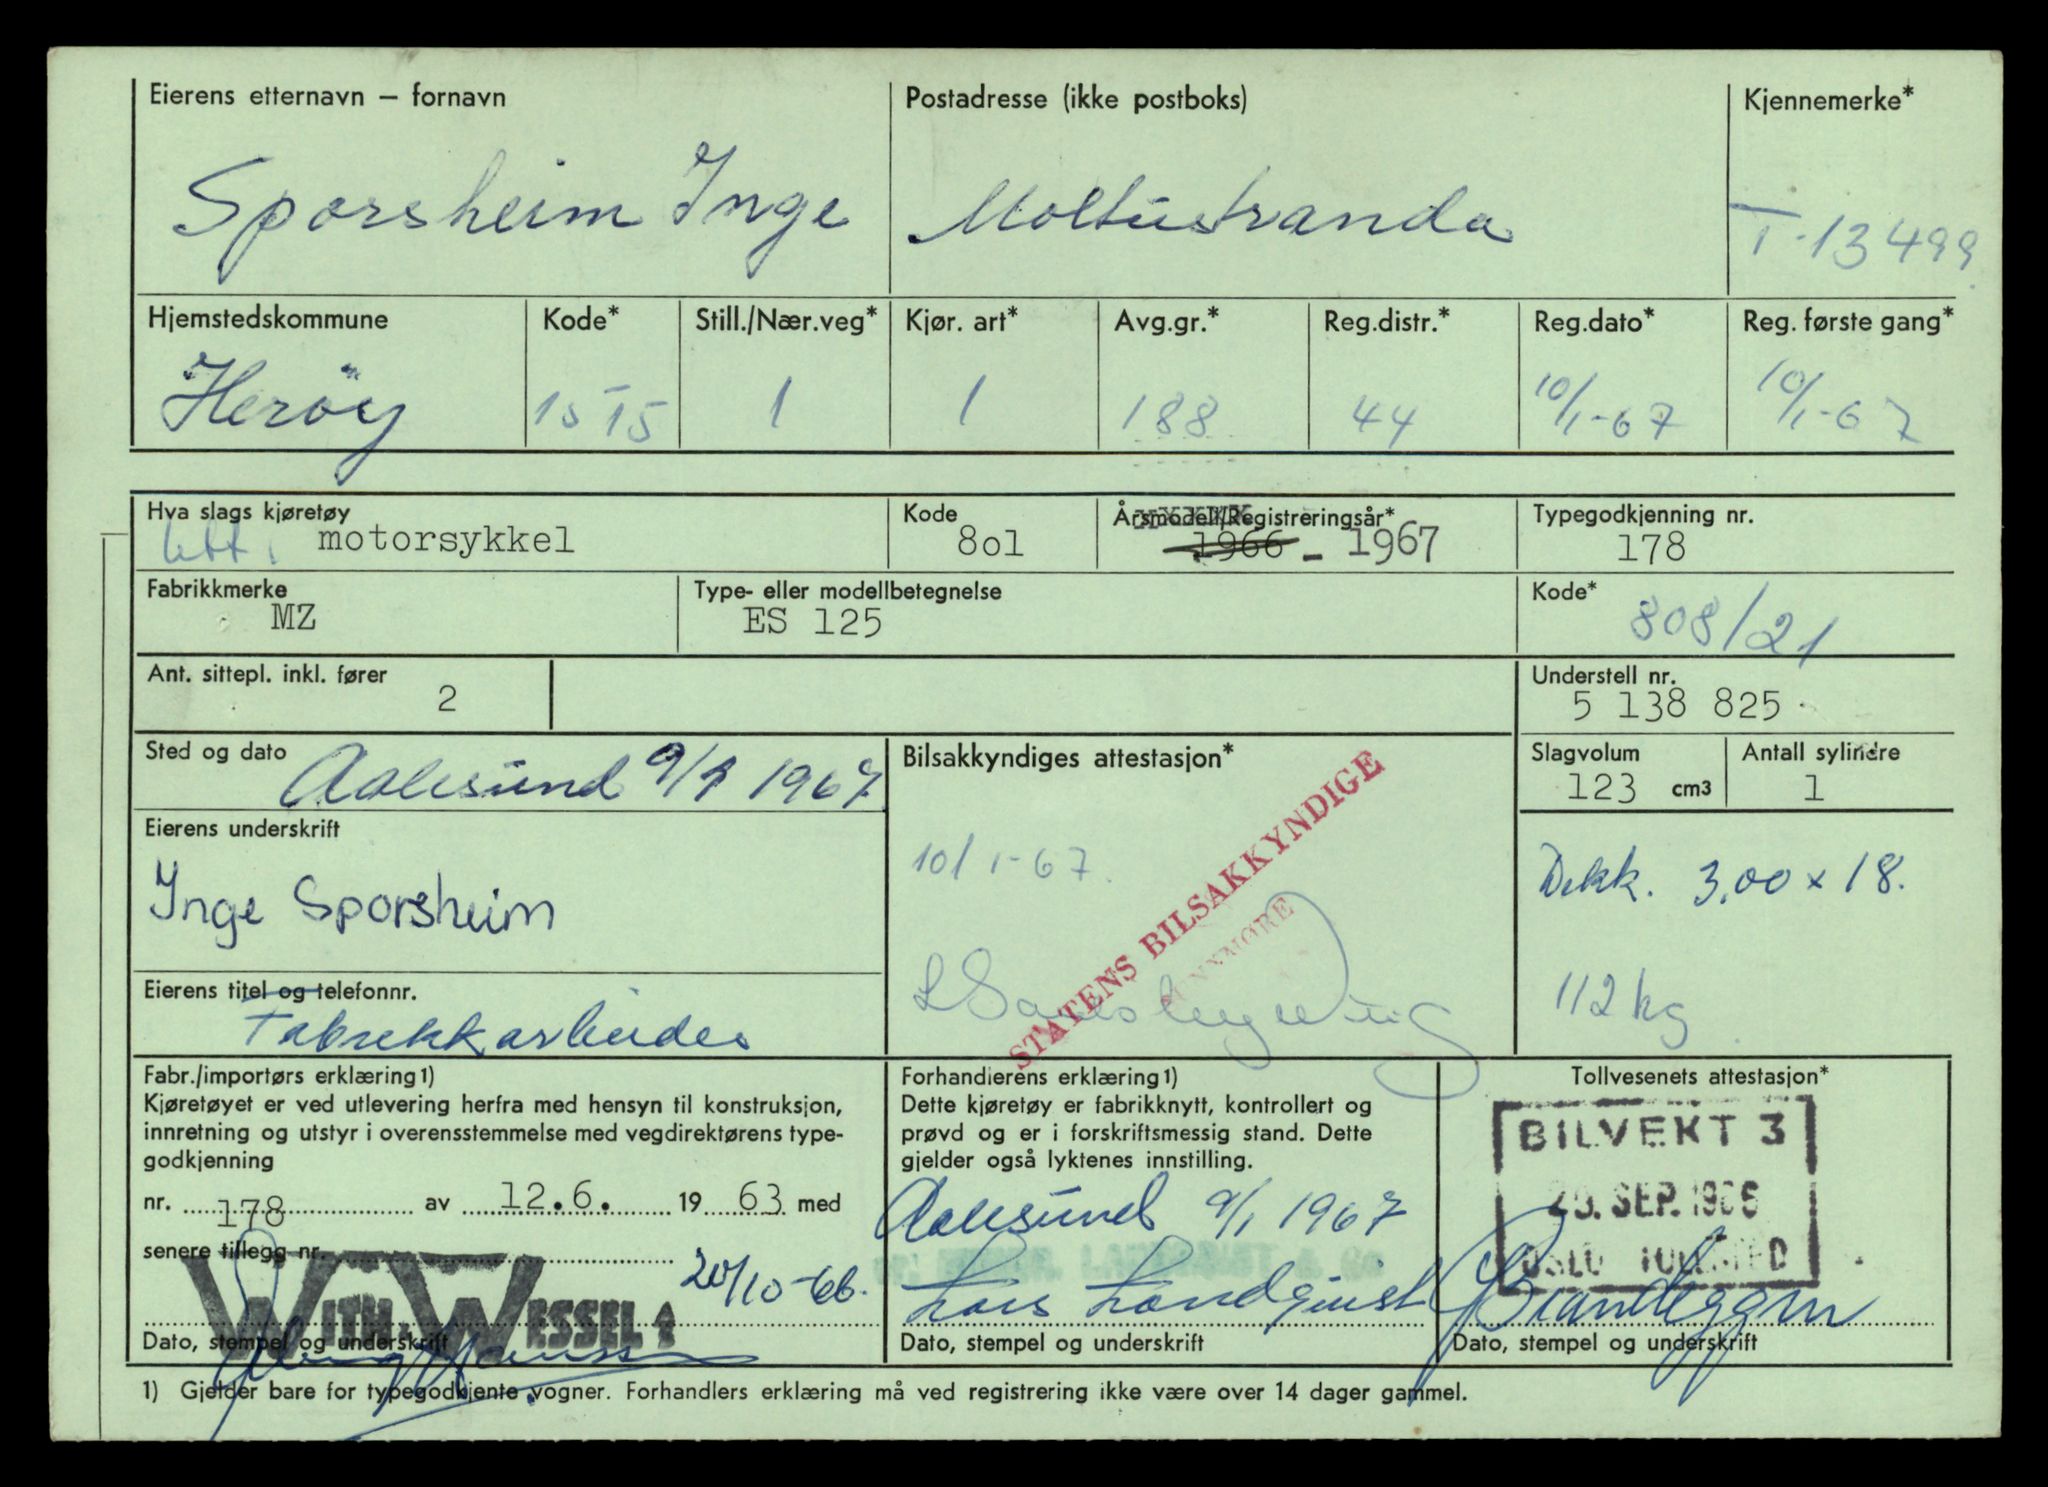 Eierens etternavn – fornavn
Postadresse (ikke postboks)
Kjennemerke*
Sporsheim Inge
Moltustranda
T-13499
Hjemstedskommune
Kode*
Still./Nær.veg*
Kjør. art*
Avg.gr.*
Reg.distr.*
Reg.dato*
Reg. første gang*
Herøy
1515
1
1
188
44
10/1-67
10/1-67
Hva slags kjøretøy
lett. motorsykkel
Kode
8o1
Årsmodell/Registreringsår*
1966 - 1967
Typegodkjenning nr.
178
Fabrikkmerke
MZ
Type- eller modellbetegnelse
ES 125
Kode*
808/21
Ant. sittepl. inkl. fører
2
Understell nr.
5 138 825
Sted og dato
Aalesund 9/1 1967
Bilsakkyndiges attestasjon*
STATENS BILSAKKYNDIGE
SUNNMØRE
10/1-67.
Slagvolum
123 cm3
Antall sylindre
1
Eierens underskrift
Inge Sporsheim
Dekk. 3,00 x 18.
112 kg
Eierens titel og telefonnr.
Fabrikkarbeider
Fabr./importørs erklæring1)
Kjøretøyet er ved utlevering herfra med hensyn til konstruksjon,
innretning og utstyr i overensstemmelse med vegdirektørens type-
godkjenning
nr. 178 av 12.6. 19 63 med
senere tillegg nr.
WITH. WESSEL
20/10-66.
Dato, stempel og underskrift
Forhandlerens erklæring1)
Dette kjøretøy er fabrikknytt, kontrollert og
prøvd og er i forskriftsmessig stand. Dette
gjelder også lyktenes innstilling.
Aalesund 9/1 1967
Lars Landquist
Dato, stempel og underskrift
Tollvesenets attestasjon*
BILVEKT 3
SEP. 1966
OSLO TOLLSTED
Dato, stempel og underskrift
1) Gjelder bare for typegodkjente vogner. Forhandlers erklæring må ved registrering ikke være over 14 dager gammel.